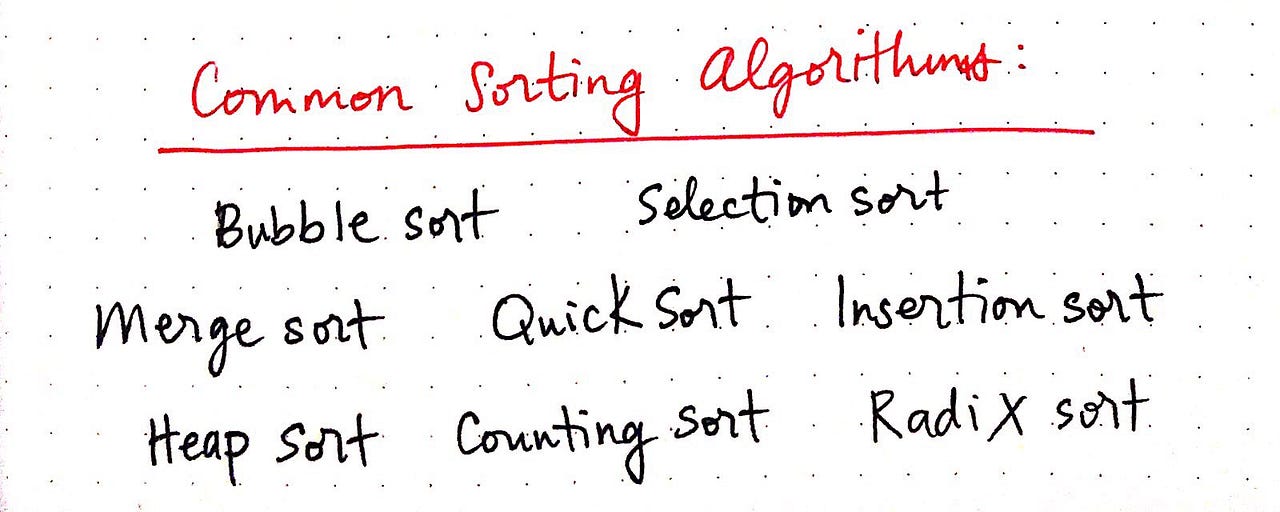 Common Sorting Algorithms:
Bubble sort Selection sort
Merge sort Quick Sort Insertion sort
Heap Sort Counting sort Radix sort